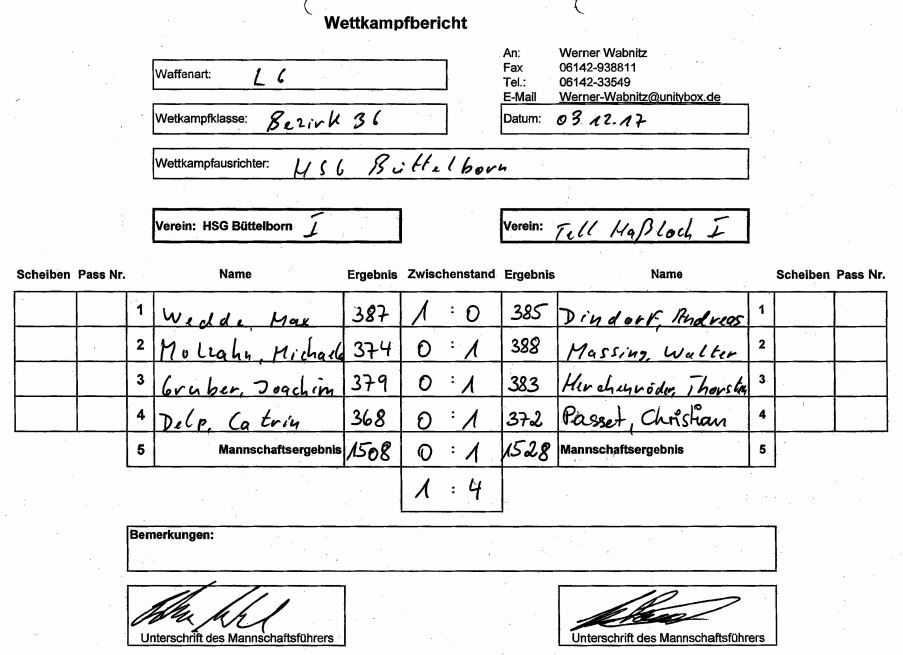 Wettkampfbericht
An: Werner Wabnitz
Fax 06142-938811
Tel.: 06142-33549
E-Mail Werner-Wabnitz@unitybox.de
Waffenart: LG
Wetkampfklasse: Bezirk 36
Datum: 03.12.17
Wettkampfausrichter: HSG Büttelborn
Verein: HSG Büttelborn I
Verein: Tell Haßloch I
Scheiben Pass Nr. Name Ergebnis Zwischenstand Ergebnis Name Scheiben Pass Nr.
1 Wedde, Max 387 1 : 0 385 Dindorf, Andreas 1
2 Molzahn, Michael 374 0 : 1 388 Massing, Walter 2
3 Gruber, Joachim 379 0 : 1 383 Hirchenröder, Thorsten 3
4 Delp, Catrin 368 0 : 1 372 Passet, Christian 4
5 Mannschaftsergebnis 1508 0 : 1 1528 Mannschaftsergebnis 5
1 : 4
Bemerkungen:
Unterschrift des Mannschaftsführers
Unterschrift des Mannschaftsführers